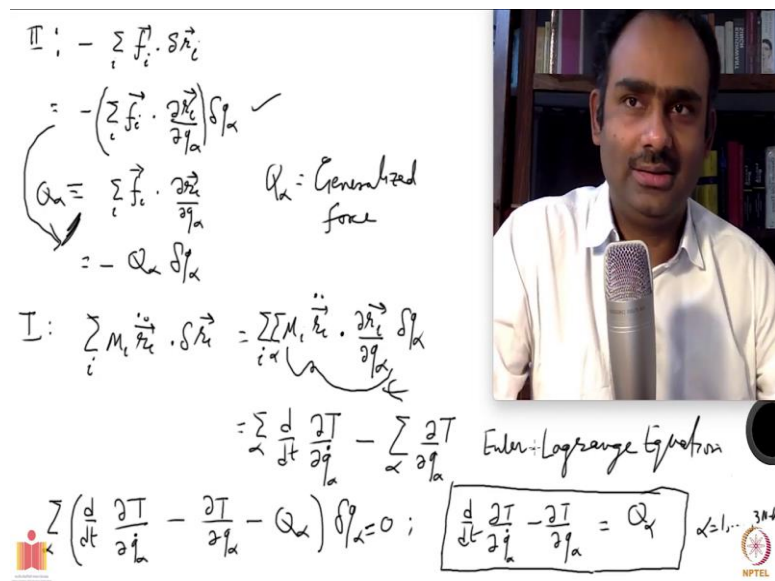 II: - Σ_i f⃗_i · δr⃗_i
= - (Σ_i f⃗_i · ∂r⃗_i/∂q_α) δq_α ✓
Q_α ≡ Σ_i f⃗_i · ∂r⃗_i/∂q_α    Q_α = Generalized force
= - Q_α δq_α
I: Σ_i m_i r̈⃗_i · δr⃗_i = Σ_i Σ_α m_i r̈⃗_i · ∂r⃗_i/∂q_α δq_α
= Σ_α d/dt ∂T/∂q̇_α - Σ_α ∂T/∂q_α    Euler-Lagrange Equation
Σ_α (d/dt ∂T/∂q̇_α - ∂T/∂q_α - Q_α) δq_α = 0 ;    d/dt ∂T/∂q̇_α - ∂T/∂q_α = Q_α    α=1,...
NPTEL